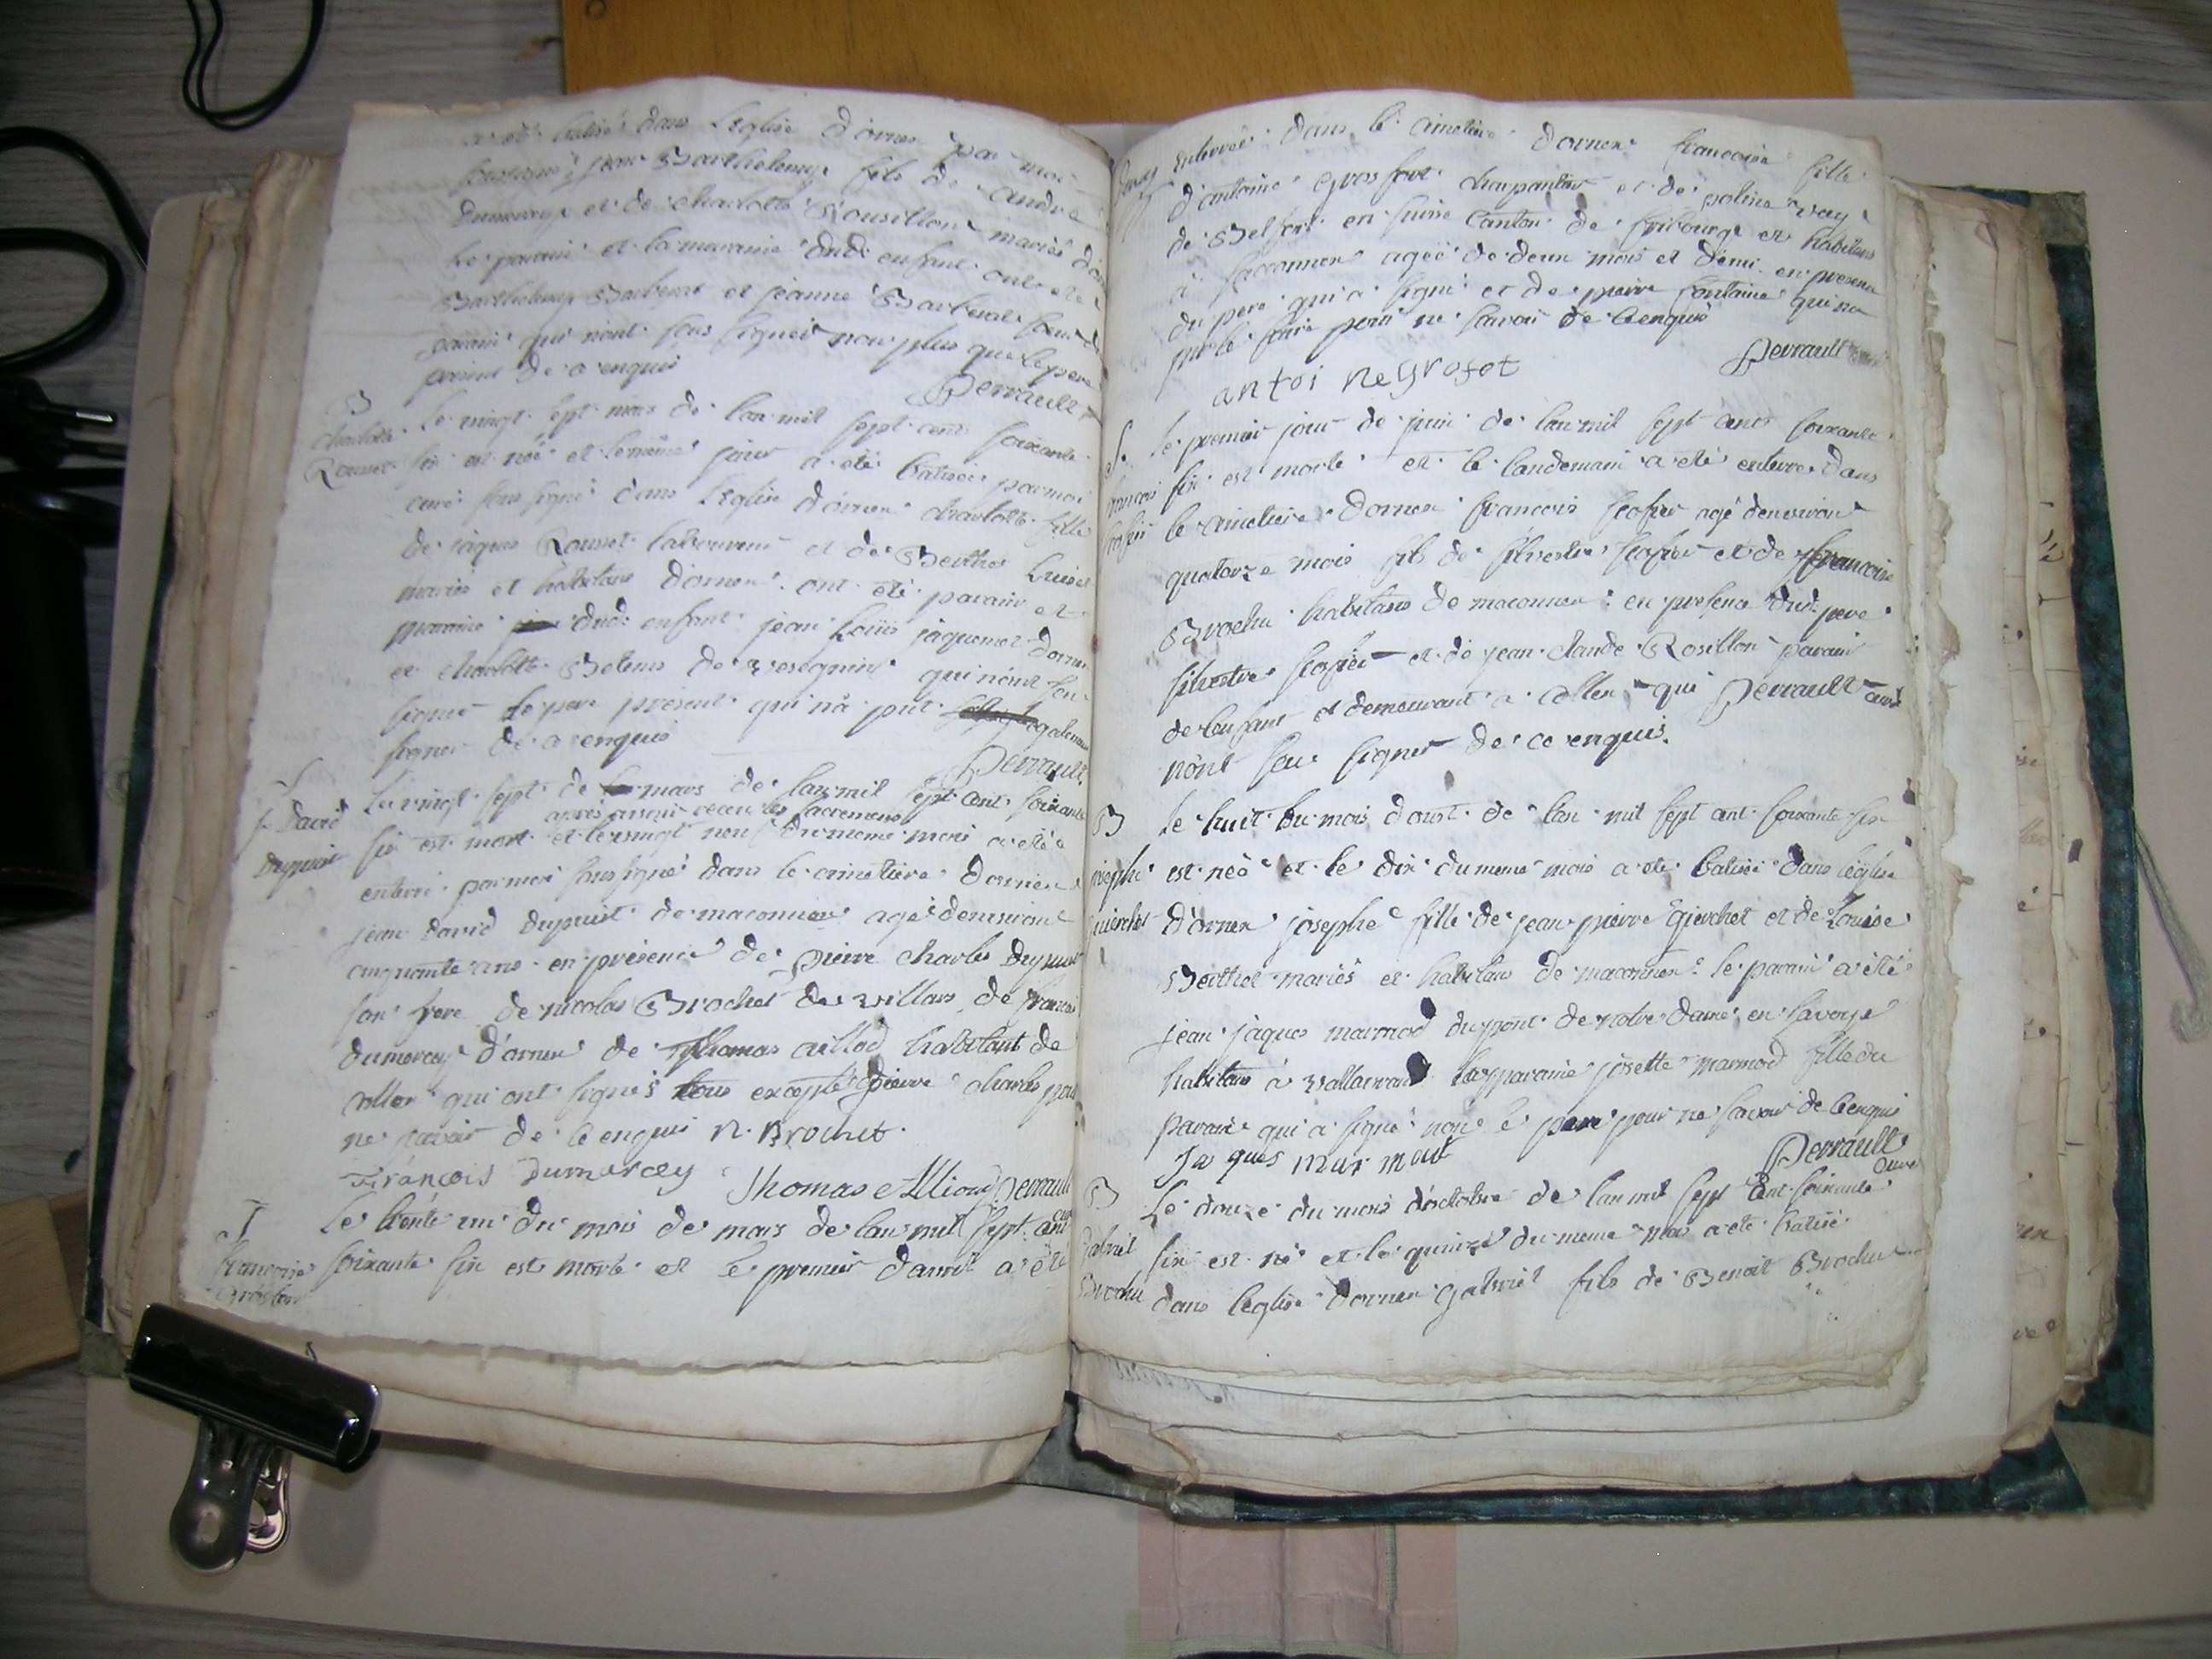 a été batisé dans l'eglise d'ornex par moi
soussigné jean Barthelemy fils de andré
Dumorcey et de charlotte Rousillon mariés
Le parain et la maraine dud: enfant ont été
Barthelemy Barberat et jeanne Barberat soeur du
parain qui n'ont sçus signer non plus que le pere
de ce enquis
Perrault
B
charlotte
Rousset
Le vingt sept mars de lan mil sept cent soixante
six est née et le même jour a été batisée par moi
curé sous signé dans l'eglise d'ornex charlotte fille
de jàques Rousset laboureur et de Berthet Louise
mariés et habitans d'ornex ont été parain et
maraine dud: enfant jean Loüis jàquemet dornex
et charlotte de vesegnin qui n'ont sçu
signer Le pere present qui n'à put egalement
signer de ce enquis
Perrault
J. David
Dupuit
Le vingt sept de mars de lan mil sept cent soixante
après avoir receu les sacremens
six est mort et le vingt neuf du meme mois a été
enterré par moi sous signé dans le cimetiere d'ornex
jean David dupuit de maconnex agé denviron
cinquante ans en présence de pierre charles Dupuit
son frere de nicolas Brochet de villars de francois
dumorcey d'ornex de Thomas aillod habitant de
collex qui ont signés tous excepté pierre charles pour
ne savoir de ce enquis N. Brochet
François Dumorcey Thomas Alliond Perrault
curé
francoise
Le trente un du mois de mars de lan mil sept cent
soixante six est morte et le premier d'avril a été
enterrée dans le cimetiere d'ornex francoise fille
d'antoine Grosfort charpantier et de
de Belfort en suisse Canton de fribourg et habitans
à agée de deux mois et demi en presence
du pere qui a signé et de pierre fontaine qui n'a
pu le faire pour ne savoir de ce enquis
Perrault
antoi ne Grofot
francois
Le premier jour de juin de lan mil sept cent soixante
six est morte et le landemain a été enterré dans
le cimetiere d'ornex francois agé denviron
quatorze mois fils de silvestre et de francoise
Brochu habitans de maconnex: en presence dud: pere
silvestre et de jean claude Rosillon parain
de lenfant et demeurant a Collex qui Perrault curé
n'ont sçu signer de ce enquis.
B
josephe
guierchet
Le huit du mois d'aoust de lan mil sept cent soixante six
est née et le dix du meme mois a été batisée dans leglise
d'ornex josephe fille de jean pierre Gierchet et de Louise
Berthet mariés et habitans de maconnex: le parain a été
jean jàques marmod du pont de notre dame en savoye
habitans à la maraine josette marmod fille du
parain qui a signé non le pere pour ne savoir de ce enquis
Ja ques mar mout Perrault
curé
B
Gabriel
Brochu
Le douze du mois d'octobre de lan mil sept cent soixante
six est né et le quinze du meme mois a été batisé
dans leglise dornex Gabriel fils de Benoit Brochu